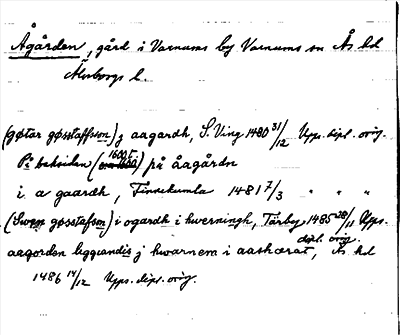 Ågården, gård i Varnums by Varnums sn Ås hd
Älvborgs l.
(gøtar gøsstaffson) j aagardh, S. Ving 1480 31/12 Upps. dipl. orig.
På baksidan (1600 t) på åagårdn
i a gaardh, Finnekumla 1481 7/3 " " "
(Swen gøstafson) i ogardh i hwerningh, Tärby 1485 28/11 Upps.
dipl. orig.
aagorden liggiandis j hwarnem i aashærat, Ås hd
1486 14/12 Upps. dipl. orig.